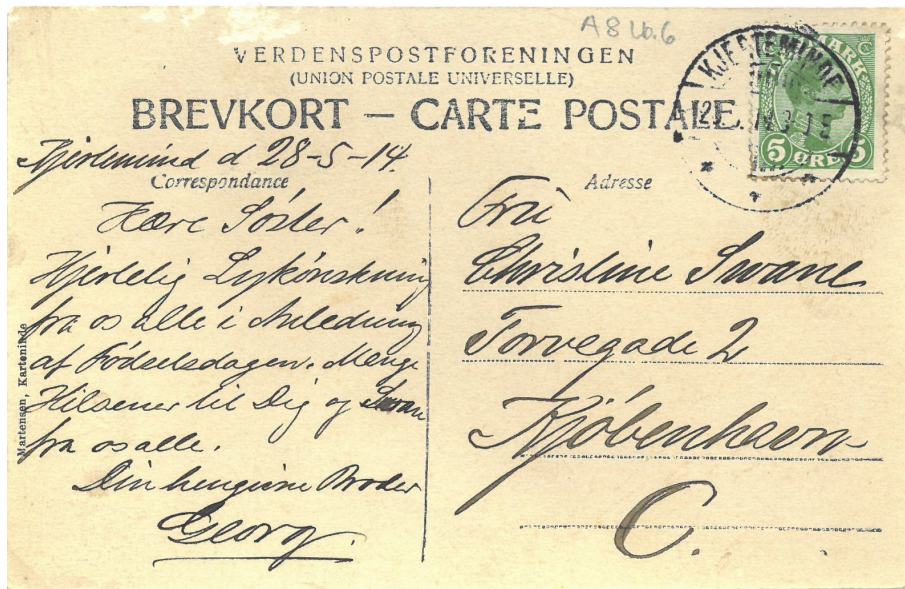 A8 Lb.6
VERDENSPOSTFORENINGEN
(UNION POSTALE UNIVERSELLE)
BREVKORT — CARTE POSTALE.
KJERTEMINDE
5 ØRE 5
Kjertemind d 28-5-14.
Correspondance
Kære Søster!
Hjertelig Lykønskning
fra os alle i Anledning
af Fødselsdagen. Mange
Hilsener til Dig og Swane
fra os alle.
Din hengivne Broder
Georg.
Martensen, Karteminde
Adresse
Fru
Christine Swane
Torvegade 2
Kjøbenhavn
C.